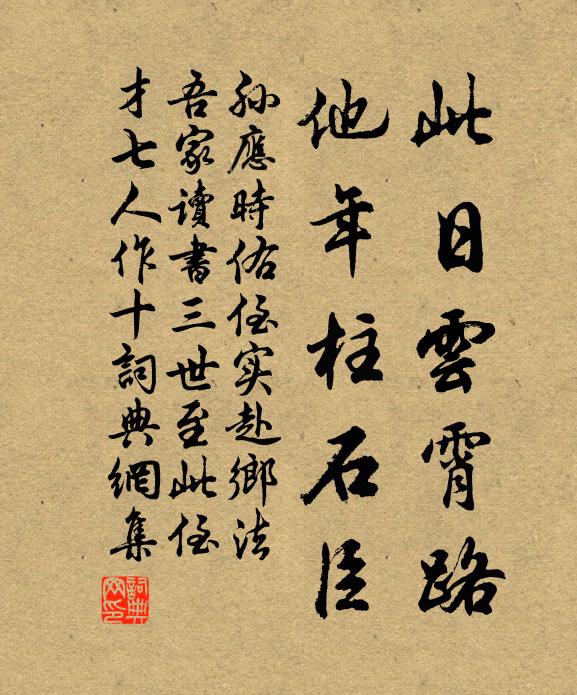 此日雲霄路
他年柱石臣
孫應時佑侄实赴鄉法
吾家讀書三世至此侄
才七人作十詞典網集
詞典网印